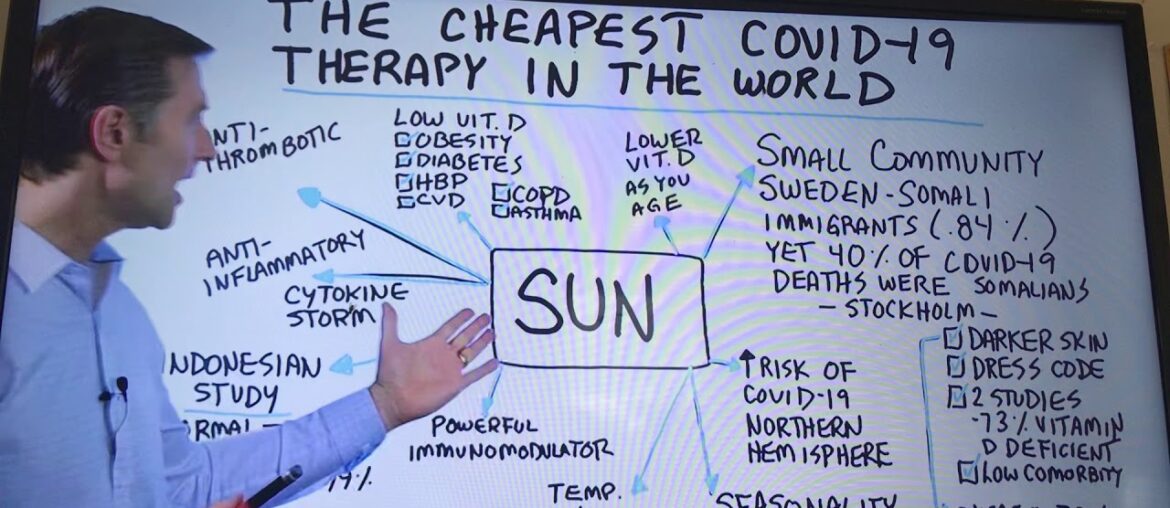 THE CHEAPEST COVID-19
THERAPY IN THE WORLD
NTI-
THROMBOTIC
LOW VIT. D
OBESITY
DIABETES
HBP
CVD
COPD
ASTHMA
LOWER
VIT. D
AS YOU
AGE
SMALL COMMUNITY
SWEDEN-SOMALI
IMMIGRANTS (.84%)
YET 40% OF COVID-19
DEATHS WERE SOMALIANS
- STOCKHOLM -
DARKER SKIN
DRESS CODE
2 STUDIES
-73% VITAMIN
D DEFICIENT
LOW COMORBITY
ANTI-
INFLAMMATORY
CYTOKINE
STORM
SUN
NDONESIAN
STUDY
RMAL -
POWERFUL
IMMUNOMODULATOR
↑ RISK OF
COVID-19
NORTHERN
HEMISPHERE
TEMP.
SEASONALITY